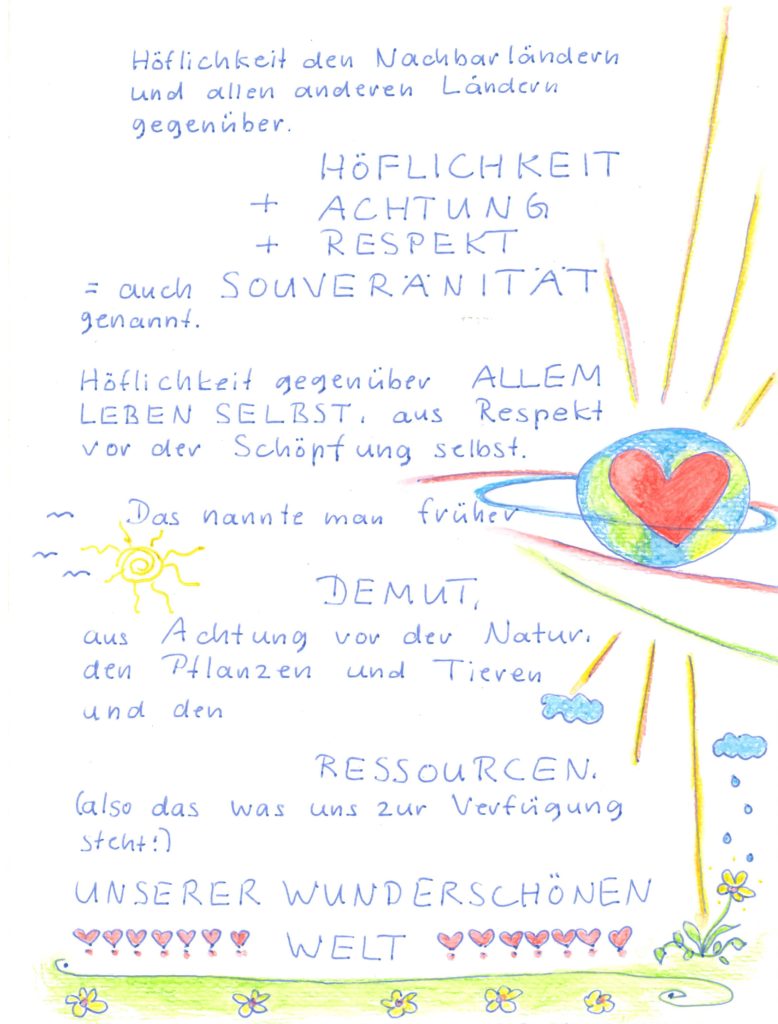 Höflichkeit den Nachbarländern
und allen anderen Ländern
gegenüber.
HÖFLICHKEIT
+ ACHTUNG
+ RESPEKT
= auch SOUVERÄNITÄT
genannt.
Höflichkeit gegenüber ALLEM
LEBEN SELBST, aus Respekt
vor der Schöpfung selbst.
Das nannte man früher
DEMUT,
aus Achtung vor der Natur,
den Pflanzen und Tieren
und den
RESSOURCEN.
(also das was uns zur Verfügung
steht!)
UNSERER WUNDERSCHÖNEN
WELT